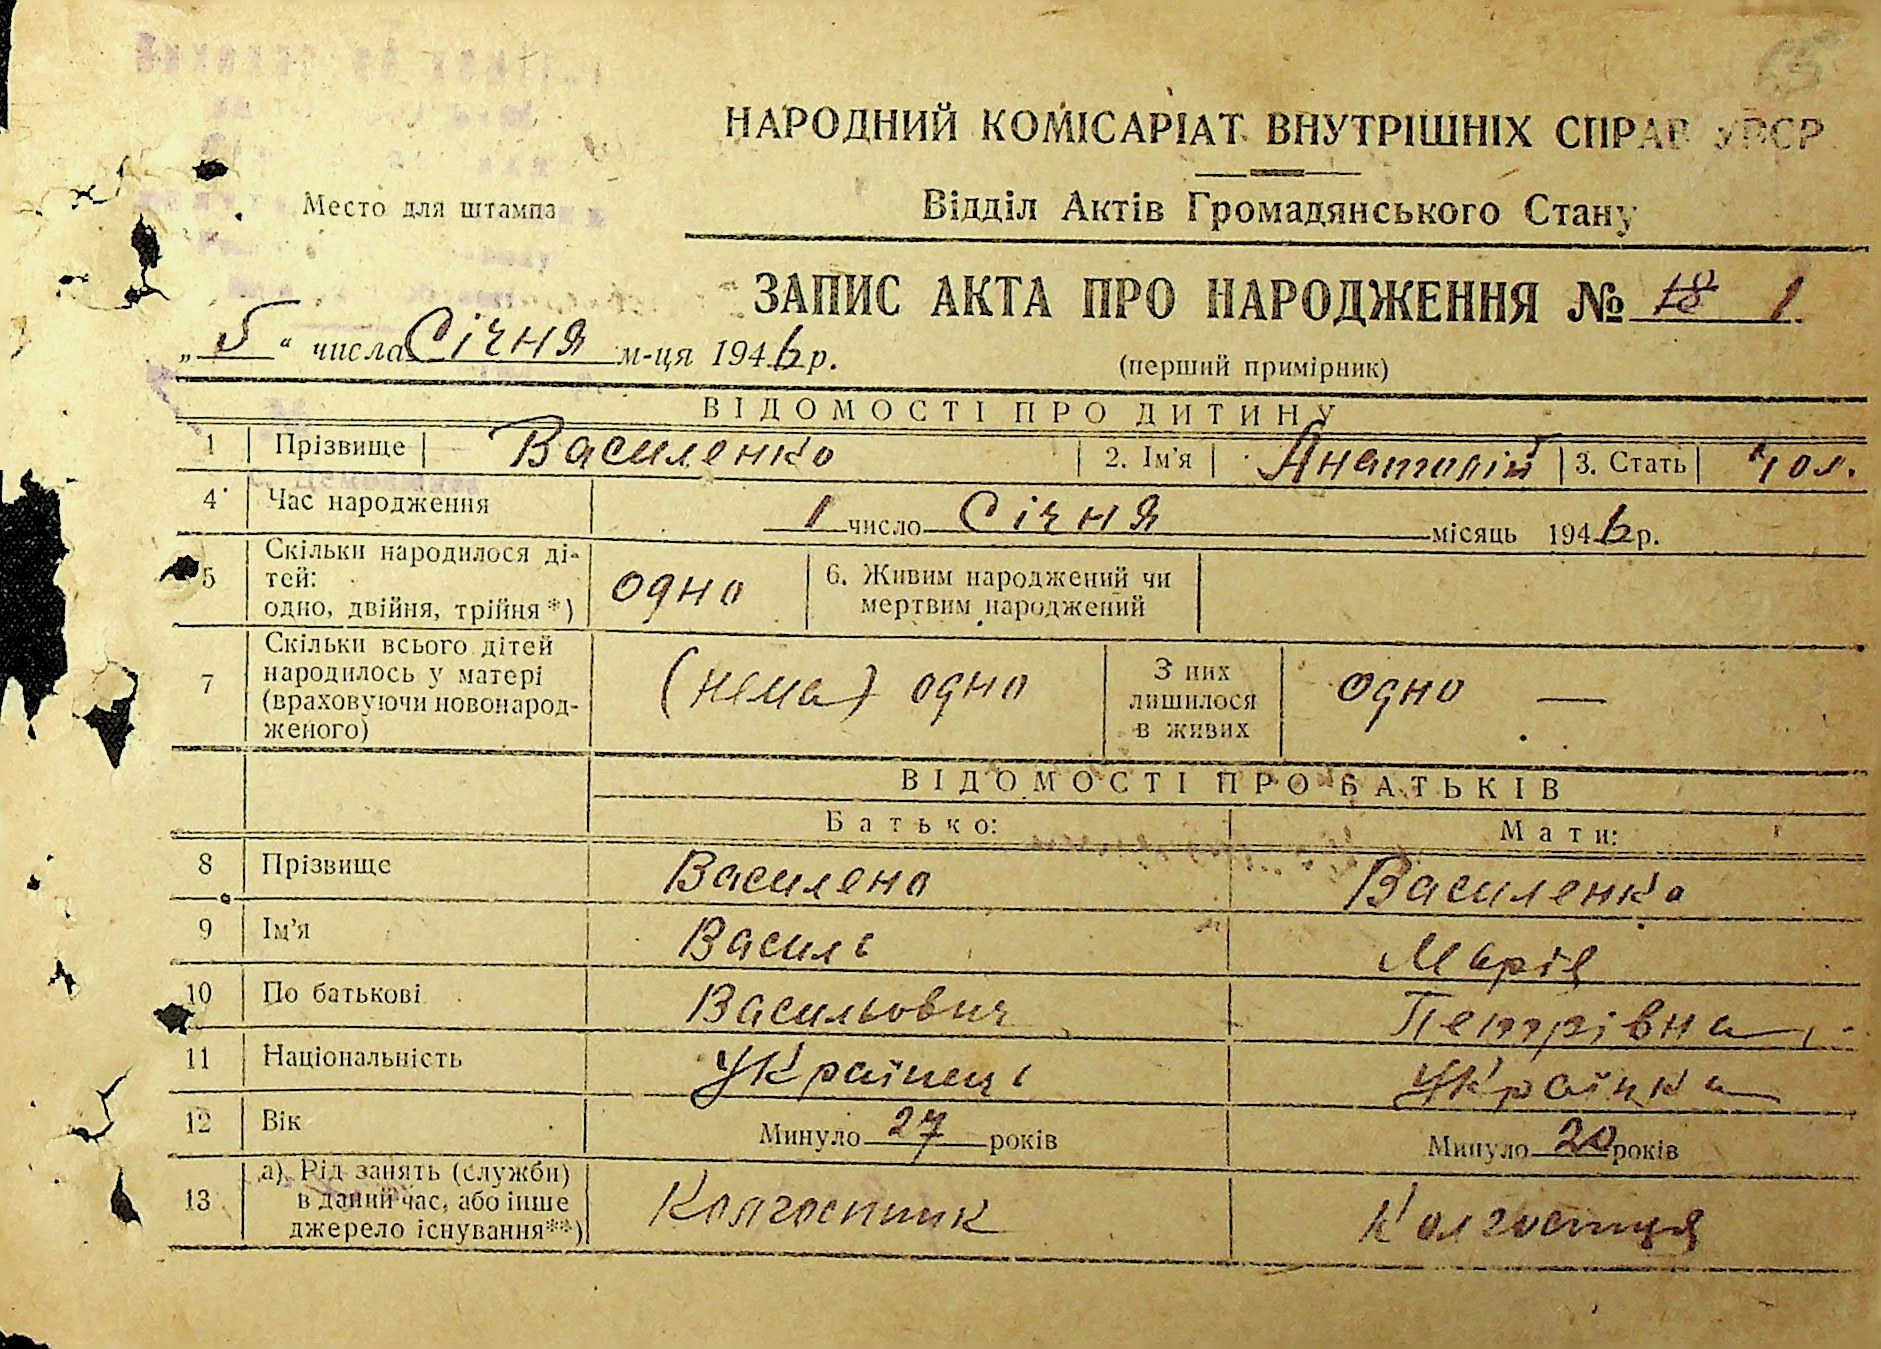 НАРОДНИЙ КОМІСАРІАТ ВНУТРІШНІХ СПРАВ УРСР
Место для штампа
Відділ Актів Громадянського Стану
ЗАПИС АКТА ПРО НАРОДЖЕННЯ № 18 1
„5“ числа Січня м-ця 1946 р.
(перший примірник)
ВІДОМОСТІ ПРО ДИТИНУ
1 Прізвище Василенко 2. Ім'я Анатолій 3. Стать чол.
4 Час народження 1 число Січня місяць 1946 р.
5 Скільки народилося ді-
тей:
одно, двійня, трійня*) одно 6. Живим народжений чи
мертвим народжений
7 Скільки всього дітей
народилось у матері
(враховуючи новонарод-
женого) (нема) одно З них
лишилося
в живих одно —
ВІДОМОСТІ ПРО БАТЬКІВ
Батько: Мати:
8 Прізвище Василено Василенко
9 Ім'я Василь Марія
10 По батькові Васильович Петрівна
11 Національність Українець Українка
12 Вік Минуло 27 років Минуло 20 років
13 а) Рід занять (служби)
в даний час, або інше
джерело існування**) Колгоспник Колгоспниця